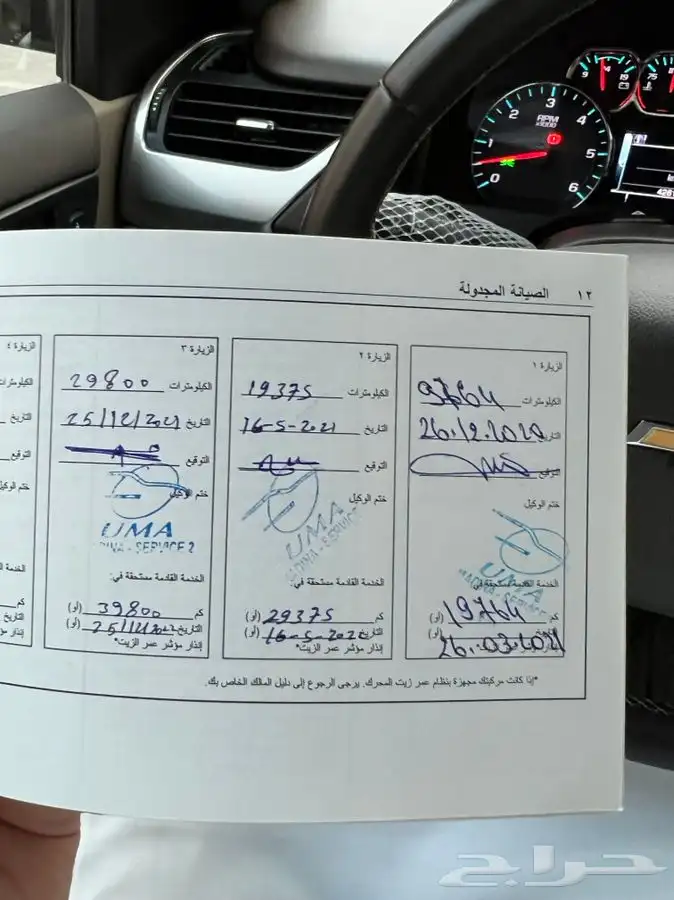 ١٢ الصيانة المجدولة
الزيارة ١
الكيلومترات 9764
التاريخ 26.12.2020
التوقيع
ختم الوكيل
UMA
الخدمة القادمة مستحقة في:
كم 19764 (أو)
26.03.2021 (أو)
إنذار مؤشر عمر الزيت*
الزيارة ٢
الكيلومترات 19375
التاريخ 16-5-2021
التوقيع
ختم الوكيل
UMA
الخدمة القادمة مستحقة في:
كم 29375 (أو)
التاريخ 16-5-2022 (أو)
إنذار مؤشر عمر الزيت*
الزيارة ٣
الكيلومترات 29800
التاريخ 25/12/2021
التوقيع
ختم الوكيل
UMA
SERVICE 2
الخدمة القادمة مستحقة في:
كم 39800 (أو)
التاريخ 25/12/2022 (أو)
إنذار مؤشر عمر الزيت*
الزيارة ٤
*إذا كانت مركبتك مجهزة بنظام عمر زيت المحرك. يرجى الرجوع إلى دليل المالك الخاص بك.
RPM
x1000
0
1
2
3
4
5
6
9
19
حراج